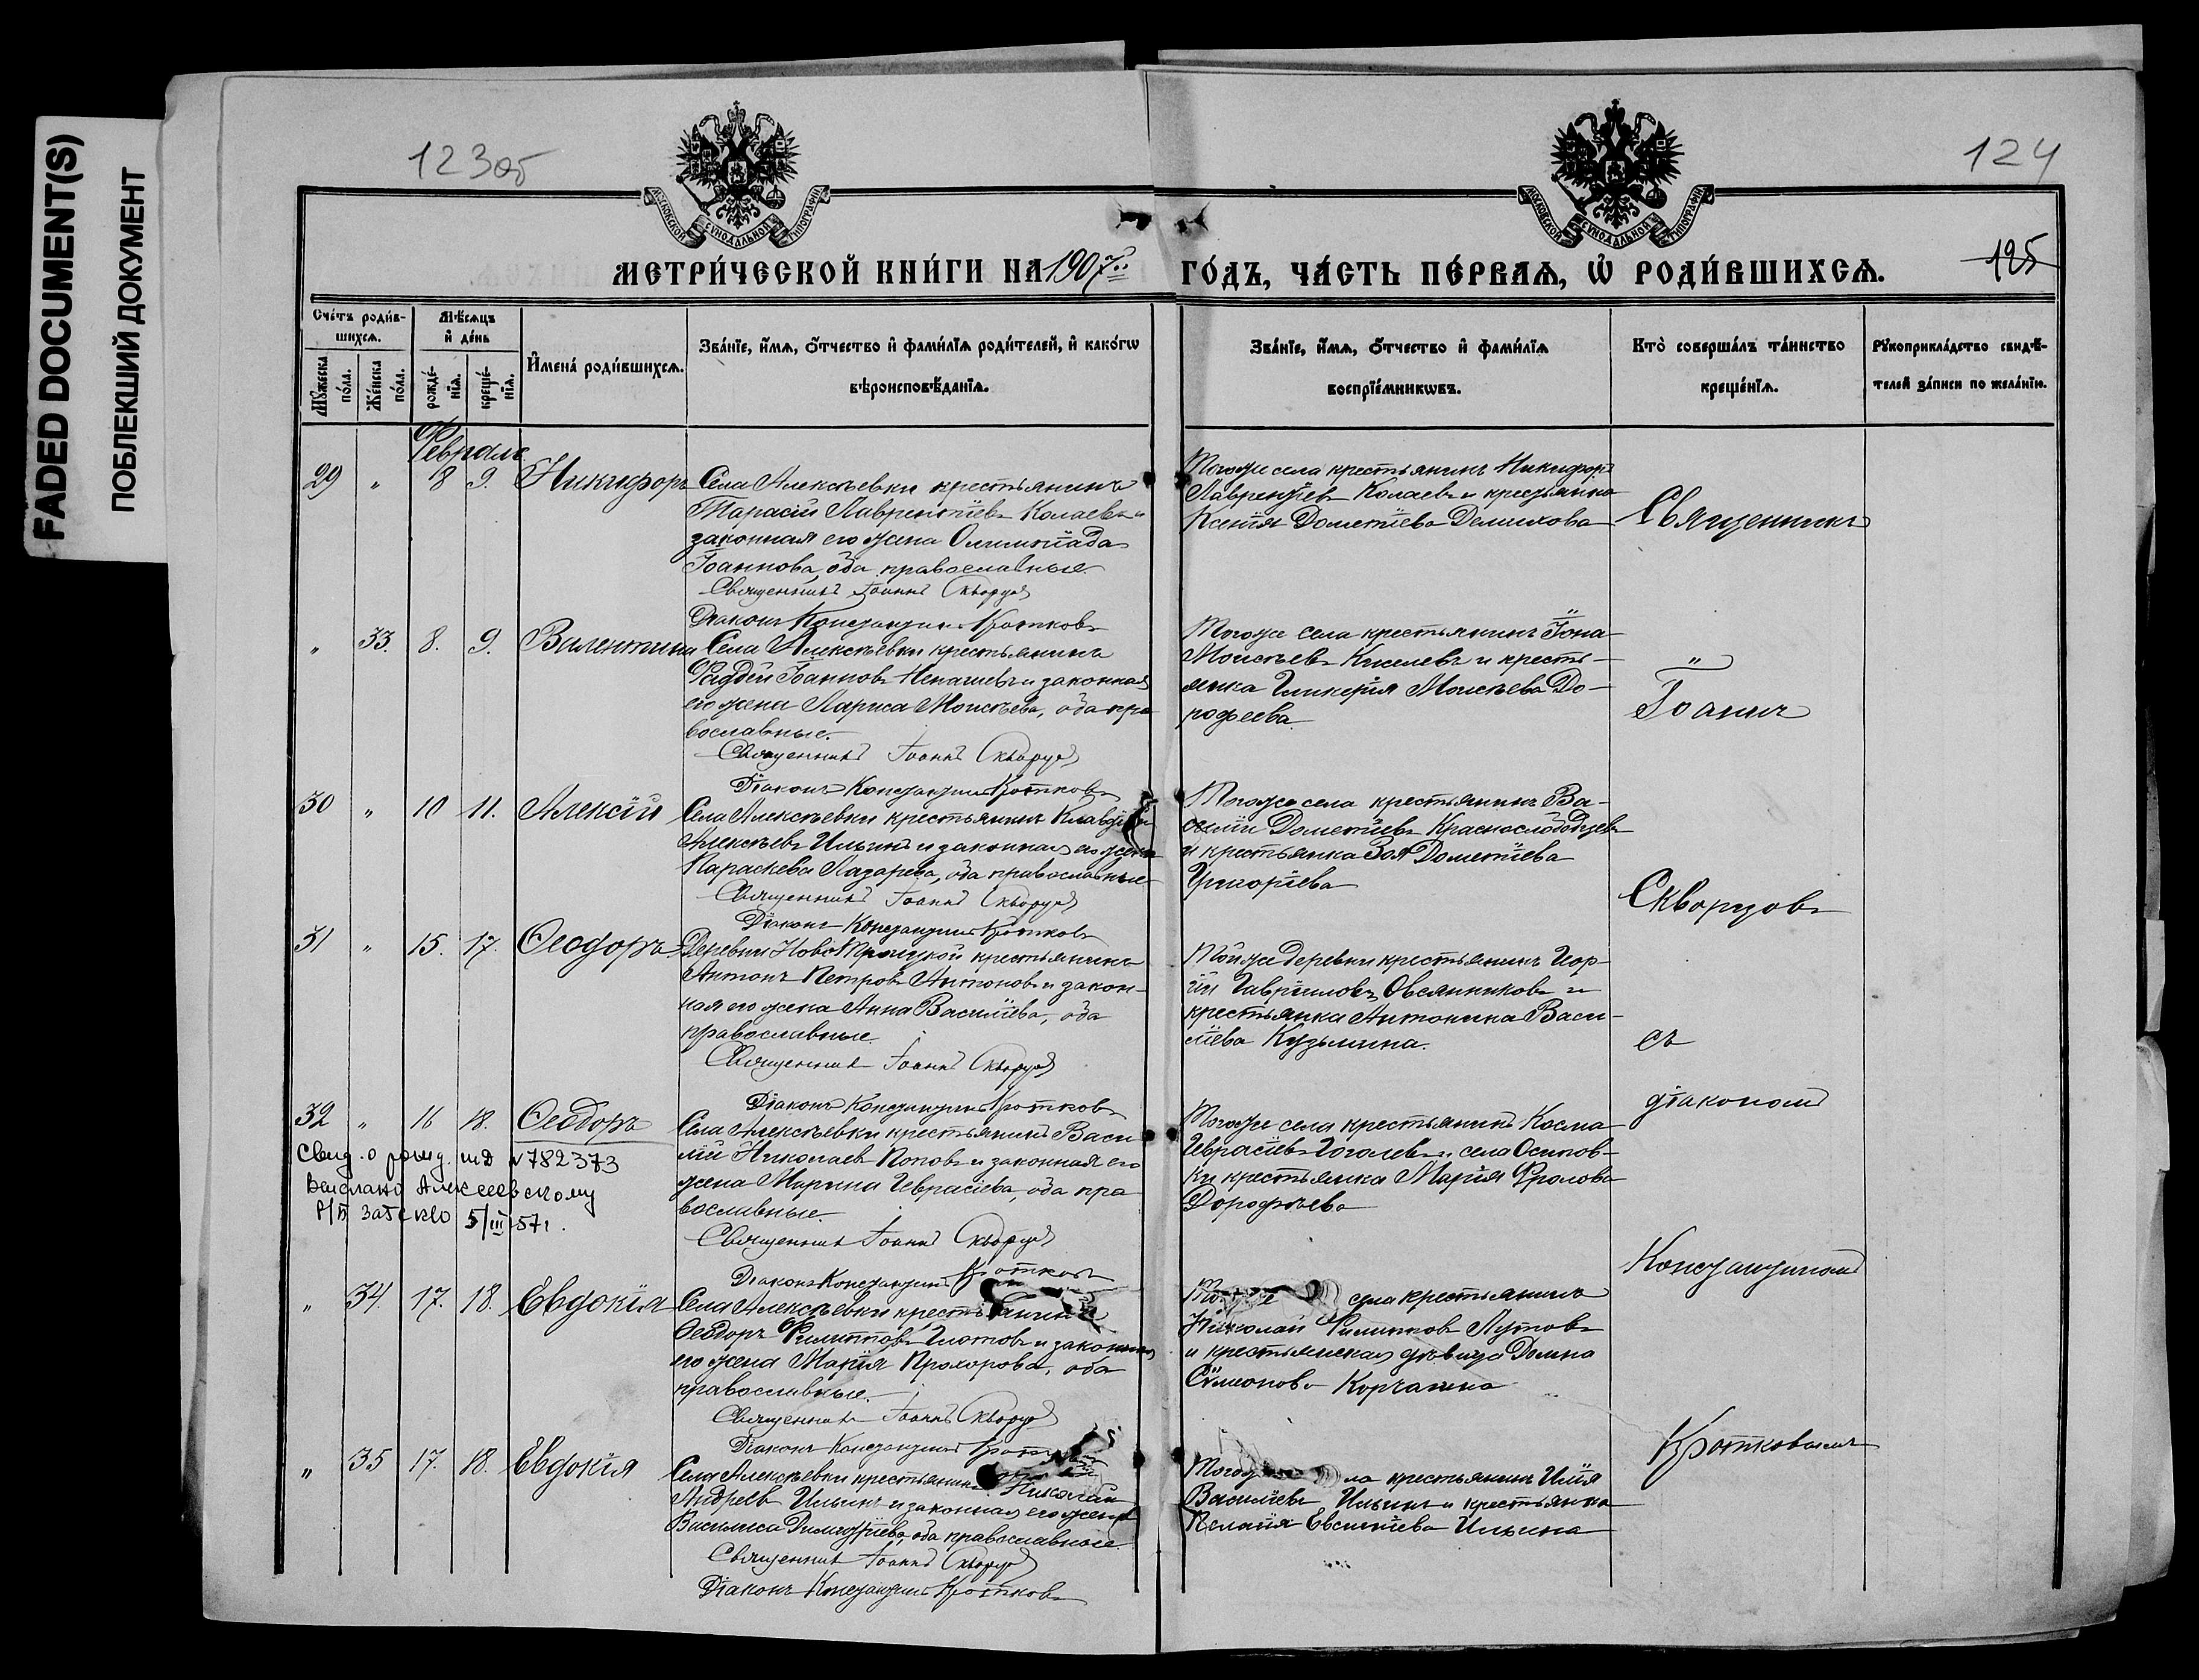 FADED DOCUMENT(S)
ПОБЛЕКШИЙ ДОКУМЕНТ
123об
124
МОСКОВСКОЙ СѴНОДАЛЬНОЙ ТИПОГРАФІИ
МОСКОВСКОЙ СѴНОДАЛЬНОЙ ТИПОГРАФІИ
МЕТРИ́ЧЕСКОЙ КНИ́ГИ НА 1907й ГО́ДЪ, ЧА́СТЬ ПЕ́РВАѦ, Ѡ҆ РОДИ́ВШИХСѦ.
125
Сче́тъ роди́в-
шихсѧ.
Мꙋ́жеска по́ла.
Же́нска по́ла.
Мѣ́сѧцъ
и҆ де́нь
рожде́-
нїѧ.
креще́-
нїѧ.
И҆мена̀ роди́вшихсѧ.
Зва́нїе, и҆́мѧ, ѻ҆́тчество и҆ фами́лїѧ роди́телей, и҆ како́гѡ
вѣроисповѣ́данїѧ.
Зва́нїе, и҆́мѧ, ѻ҆́тчество и҆ фами́лїѧ
воспрїе́мникѡвъ.
Кто̀ соверша́лъ та́инство
креще́нїѧ.
Рꙋкоприкла́дство свидѣ́-
телей за́писи по жела́нїю.
Февраль
29 " 8 9. Никифоръ
Села Алексѣевки крестьянинъ
Тарасій Лаврентіевъ Колаевъ и
законная его жена Олимпіада
Іоаннова, оба православные.
Священникъ Іоаннъ Скворцовъ
Діаконъ Константинъ Кротковъ
Тогоже села крестьянинъ Никифоръ
Лаврентіевъ Колаевъ и крестьянка
Ксенія Дометіева Демихова
Священникъ
" 33. 8. 9. Валентина
Села Алексѣевки крестьянинъ
Фаддей Іоанновъ Ненашевъ и законная
его жена Лариса Моисѣева, оба пра
вославные.
Священникъ Іоаннъ Скворцовъ
Діаконъ Константинъ Кротковъ
Тогоже села крестьянинъ Іона
Моисѣевъ Киселевъ и кресть-
янка Гликерія Моисѣева До-
рофеева.
"
Іоаннъ
30 " 10 11. Алексій
Села Алексѣевки крестьянинъ Клавдій
Алексѣевъ Ильинъ и законная его жена
Параскева Лазарева, оба православные
Священникъ Іоаннъ Скворцовъ
Діаконъ Константинъ Кротковъ
Тогоже села крестьянинъ Ва-
силій Дометіевъ Краснослободцевъ
и крестьянка Зоя Дометіева
Григоріева
Скворцовъ
31 " 15. 17. Ѳеодоръ
Деревни Ново Троицкой крестьянинъ
Антонъ Петровъ Антоновъ и закон-
ная его жена Анна Василіева, оба
православные.
Священникъ Іоаннъ Скворцовъ
Діаконъ Константинъ Кротковъ
Тойже деревни крестьянинъ Геор-
гій Гавріиловъ Овсянниковъ и
крестьянка Антонина Васи-
ліева Кузьмина.
съ
діакономъ
32 " 16 18. Ѳеодоръ
Села Алексѣевки крестьянинъ Васи
лій Николаевъ Поповъ и законная его
жена Марина Геврасіева, оба пра
вославные.
Священникъ Іоаннъ Скворцовъ
Діаконъ Константинъ Кротковъ
Тогоже села крестьянинъ Косма
Геврасіевъ Гоголевъ и села Осинов-
ки крестьянка Марія Фролова
Дорофѣева
Свид. о рожд. №782373
Выслано Алексеевскому
Р/Б ЗАГС 5/III 57г.
Константиномъ
" 34. 17. 18. Евдокія
Села Алексѣевки крестьянинъ
Ѳеодоръ Филипповъ Глотовъ и законная
его жена Марія Прохорова, оба
православные.
Священникъ Іоаннъ Скворцовъ
Діаконъ Константинъ
села крестьянинъ
Николай Филипповъ
и крестьянская дѣвица Домна
Сѵмеонова Корчагина
Кротковымъ
" 35 17. 18. Евдокія
Села Алексѣевки крестьянинъ Николай
Андреевъ Ильинъ и законная его жена
Василиса Димитріева, оба православные.
Священникъ Іоаннъ Скворцовъ
Діаконъ Константинъ Кротковъ
крестьянинъ Илія
Василіевъ Ильинъ и крестьянка
Пелагія Евсигніева Ильина